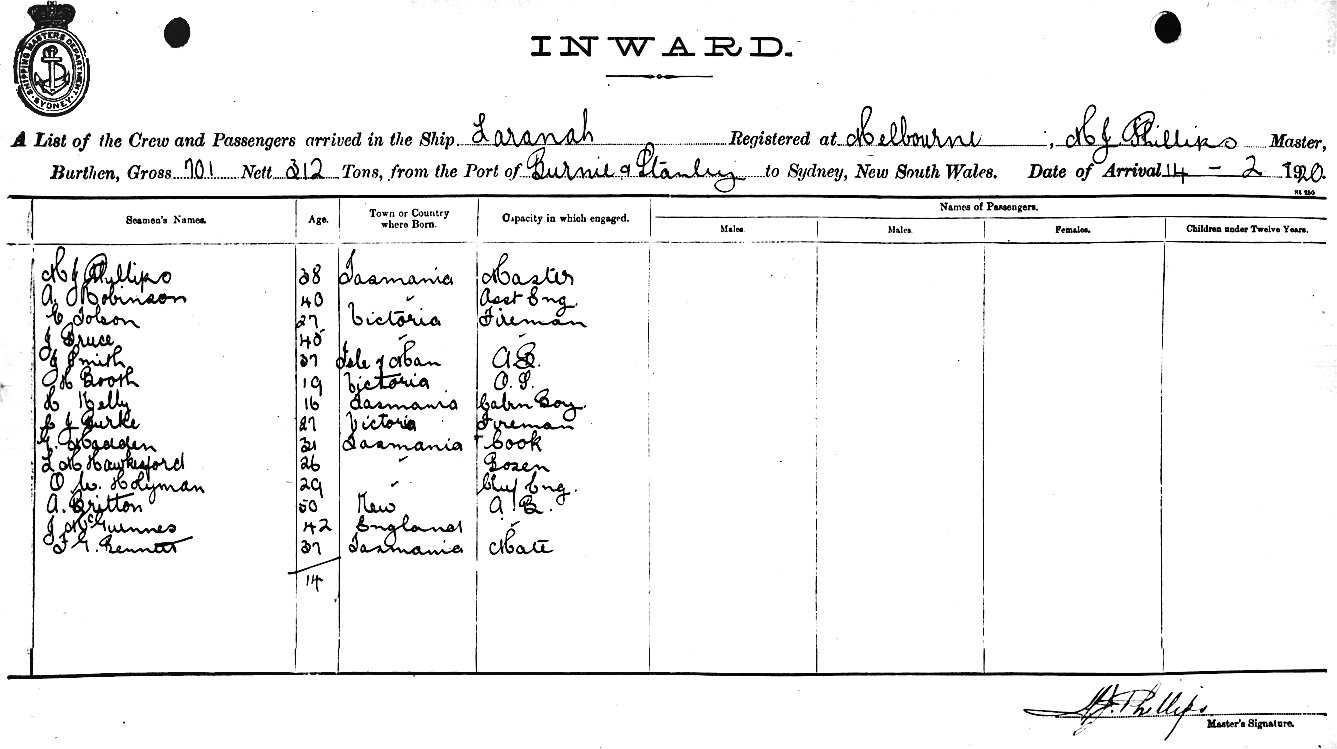 SHIPPING MASTERS DEPARTMENT. SYDNEY
INWARD.
A List of the Crew and Passengers arrived in the Ship Laranah Registered at Melbourne, H J Phillips Master,
Burthen, Gross 701 Nett 312 Tons, from the Port of Burnie & Stanley to Sydney, New South Wales. Date of Arrival 14 - 2 1920.
Names of Passengers.
Seamen's Names. Age. Town or Country where Born. Capacity in which engaged. Males. Males. Females. Children under Twelve Years.
H J Phillips 38 Tasmania Master
A. Robinson 40 " Asst Eng.
C Tolson 27 Victoria Fireman
J Bruce 45 " "
J Smith 37 Isle of Man A.B.
H Booth 19 Victoria O.S.
H Kelly 16 Tasmania Cabin Boy.
C J Burke 27 Victoria Fireman
G. Madden 31 Tasmania Cook
L H Hawkesford 26 " Bosen
O W. Holyman 29 " Chief Eng.
A. Britton 50 New A.B.
J McGuinnes 42 England "
F G. Bennett 37 Tasmania Mate
14
H J. Phillips
Master's Signature.